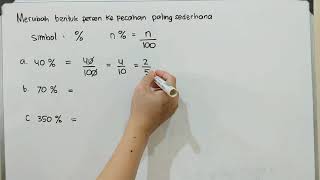 Merubah bentuk persen ke pecahan paling sederhana
simbol : % n % = n/100
a. 40 % = 40/100 = 4/10 = 2/5
b. 70 % =
c. 350 % =